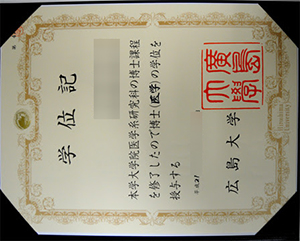 学位記
本学大学院医学系研究科の博士課程
を修了したので博士(医学)の学位を
授与する
広島大学